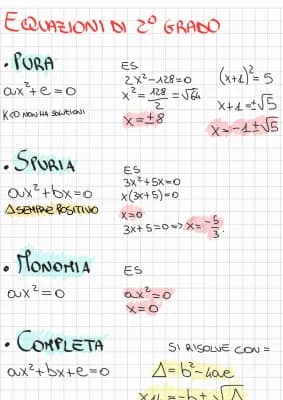 EQUAZIONI DI 2° GRADO
• PURA
ax²+c=0
K<0 NON HA SOLUZIONI
ES
2x²-128=0
x²=128/2=√64
x=±8
(x+1)²=5
x+1=±√5
x=-1±√5
• SPURIA
ax²+bx=0
Δ SEMPRE POSITIVO
ES
3x²+5x=0
x(3x+5)=0
x=0
3x+5=0=>x=-5/3.
• MONOMIA
ax²=0
ES
ax²=0
x=0
• COMPLETA
ax²+bx+c=0
SI RISOLVE CON =
Δ=b²-4ac